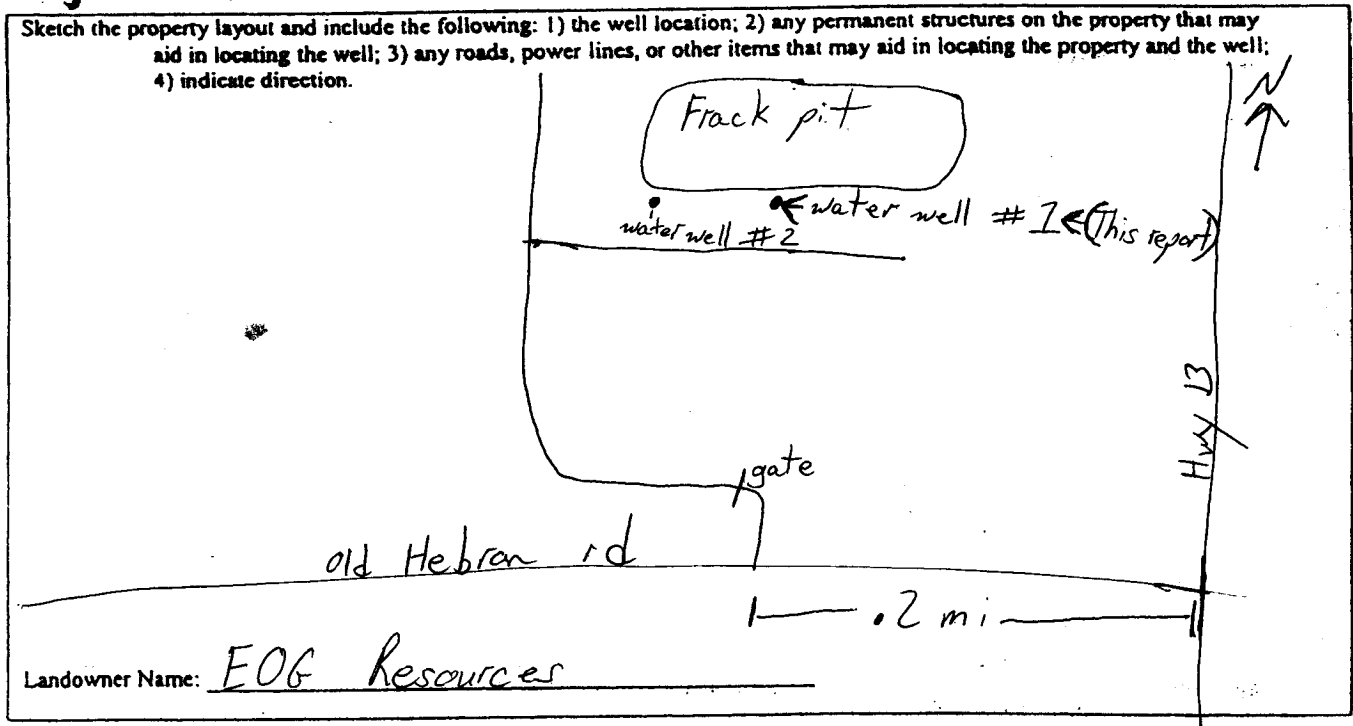 Sketch the property layout and include the following: 1) the well location; 2) any permanent structures on the property that may
aid in locating the well; 3) any roads, power lines, or other items that may aid in locating the property and the well;
4) indicate direction.
N
Frack pit
water well # 1 (This report)
water well # 2
Hwy 13
gate
old Hebron rd
.2 mi
Landowner Name: EOG Resources